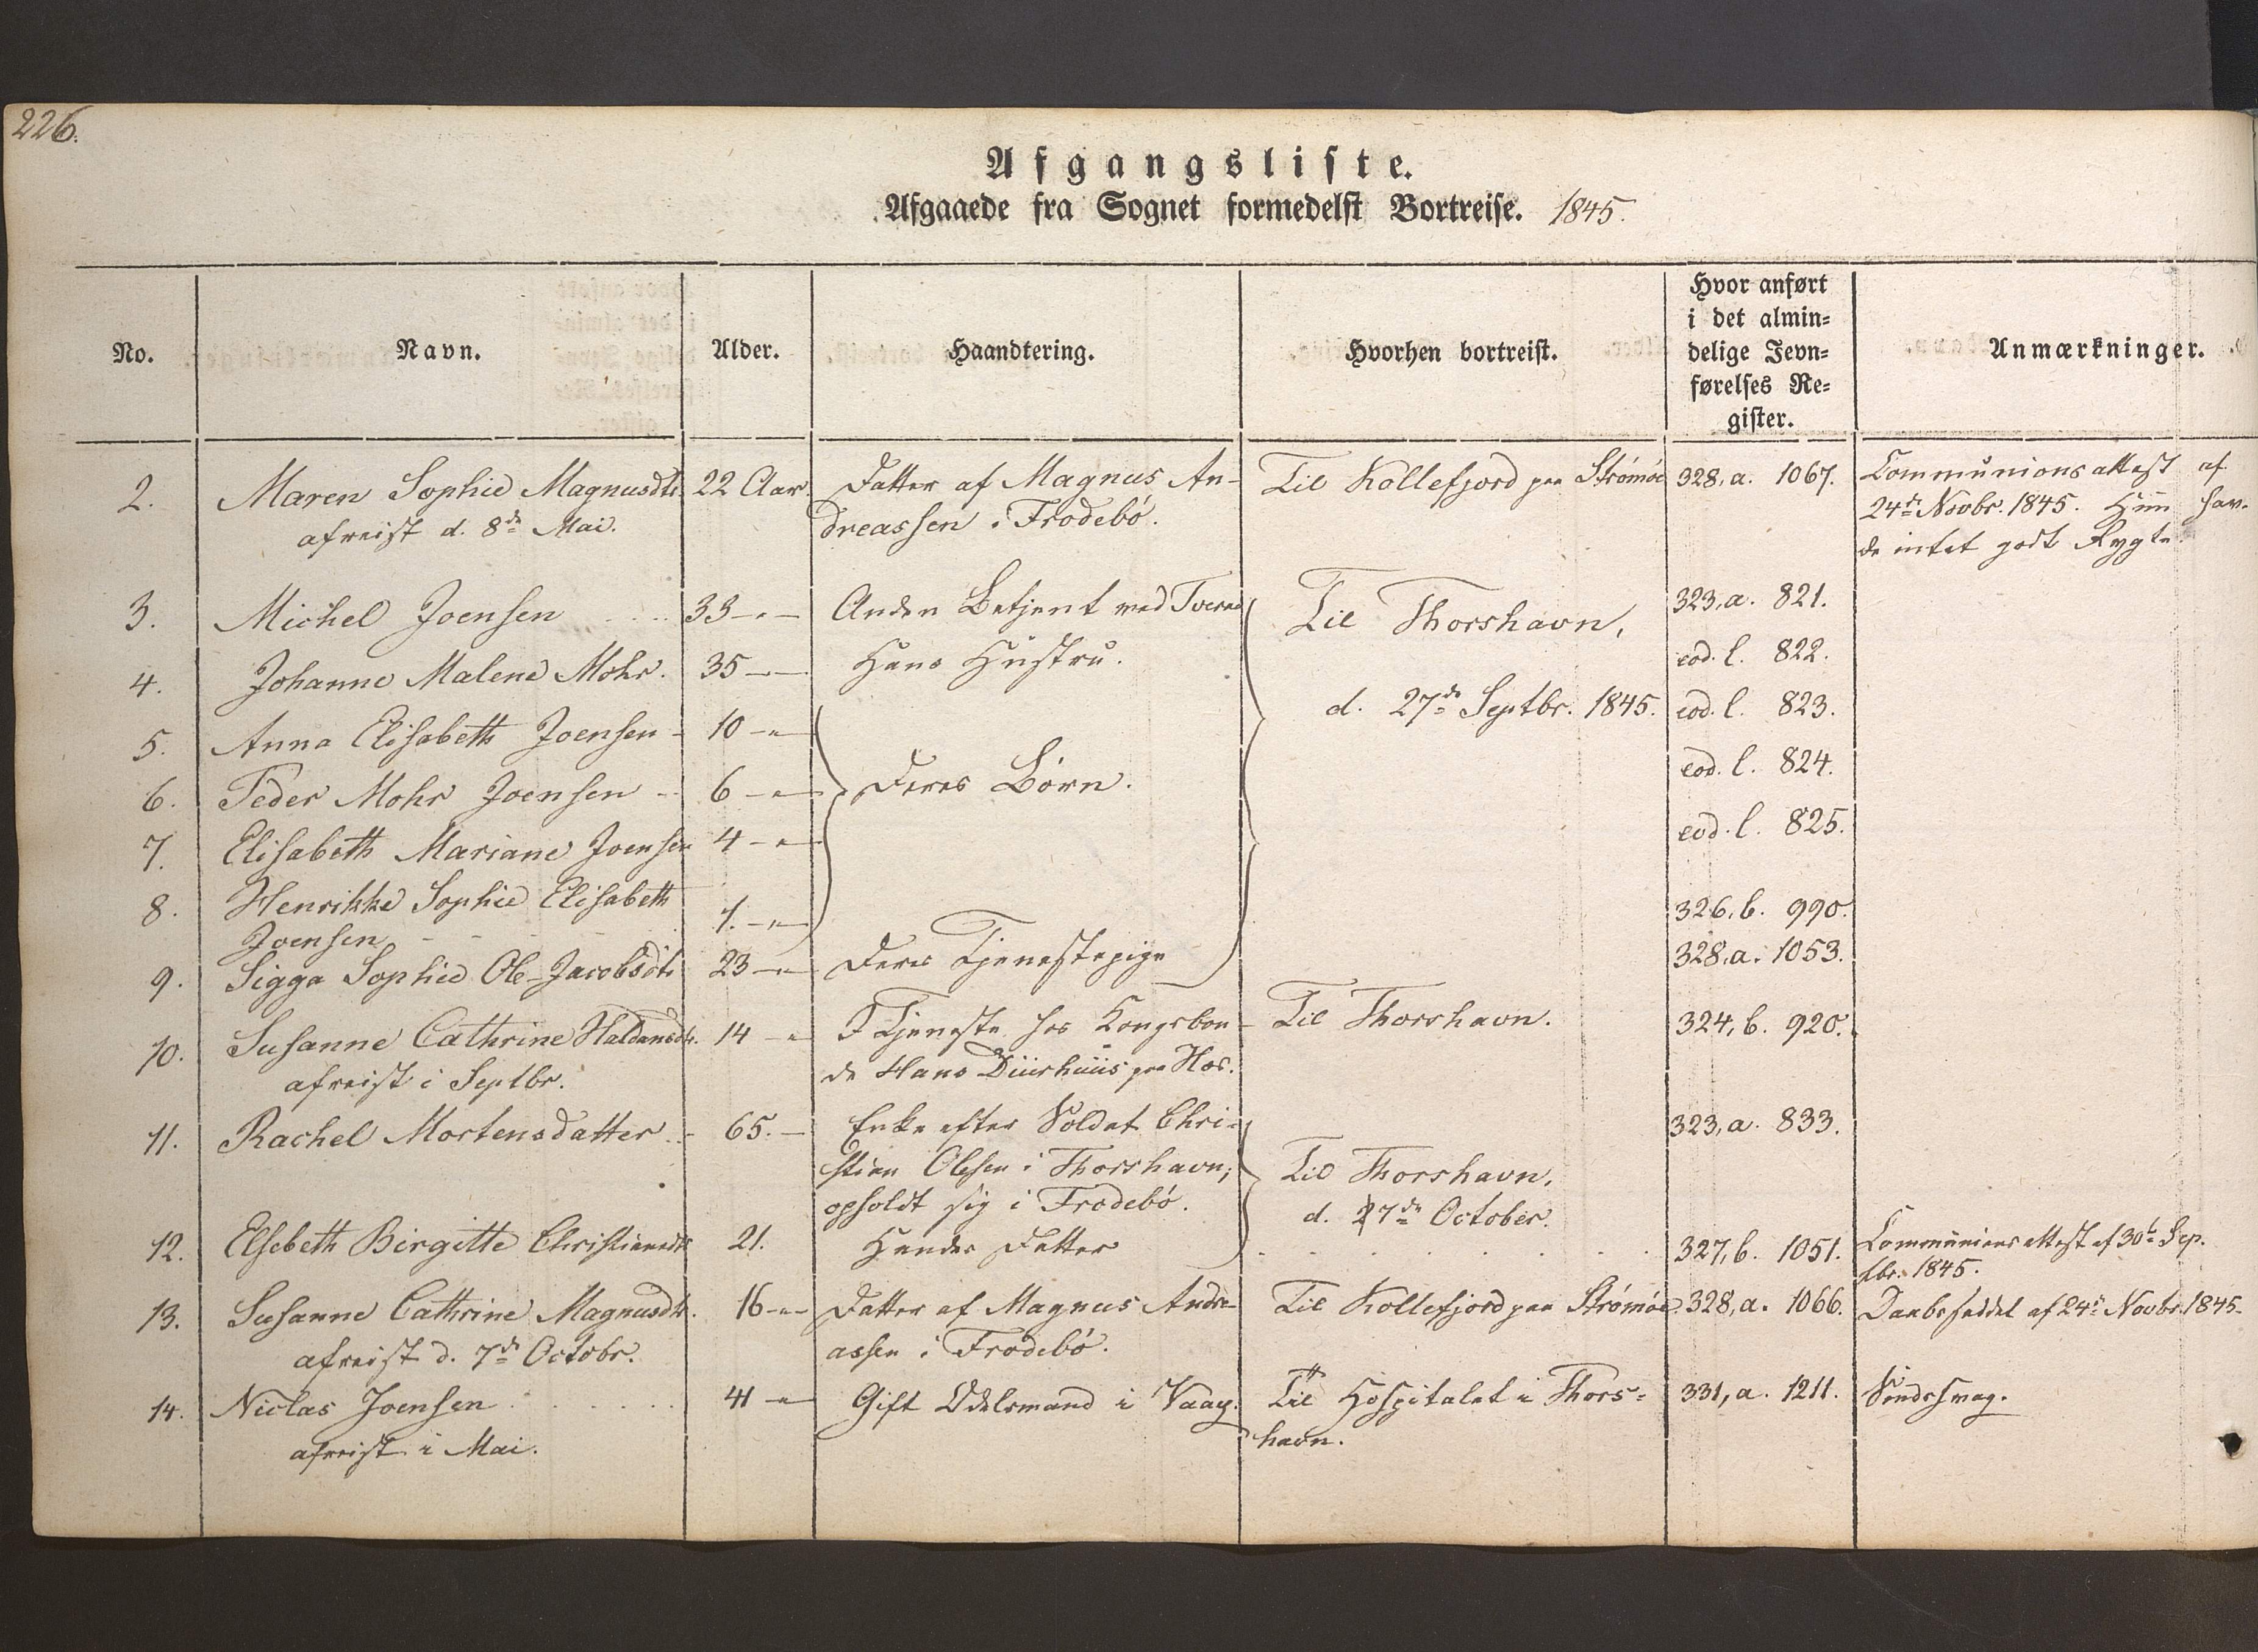 226.
Afgangsliste.
Afgaaede fra Sognet formedelst Bortreise. 1845.
No. Navn. Alder. Haandtering. Hvorhen bortreist. Hvor anført i det almin= delige Jevn= førelses Re= gister. Anmærkninger.
2. Maren Sophie Magnusdtr. 22 Aar. Datter af Magnus An- Til Kollefjord paa Strømøe 328, a. 1067. Communionsattest af
afreist d. 8de Mai. dreassen i Frodebø. 24de Novbr. 1845. Hun hav-
de intet godt Rygte.
3. Michel Joensen 33 -"- Anden Betjent ved Tveraa Til Thorshavn, 323, a. 821.
4. Johanne Malene Mohr. 35 - Hans Hustru. eod. l. 822.
d. 27de Septbr. 1845. eod. l. 823.
5. Anna Elisabeth Joensen - 10 -"-
6. Peder Mohr Joensen - 6 -"- Deres Børn. eod. l. 824.
7. Elisabeth Mariane Joensen 4 -"- eod. l. 825.
8. Henrikke Sophie Elisabeth 1. -"- 326, b. 990.
Joensen
9. Sigga Sophie Ole-Jacobsdtr 23 -"- Deres Tjenestepige 328, a. 1053.
10. Susanne Cathrine Haldansdtr. 14 -"- I Tjeneste hos Kongsbon- Til Thorshavn. 324, b. 920.
afreist i Septbr. de Hans Duurhuus paa Hov.
11. Rachel Mortensdatter 65. - Enke efter Soldat Chri- 323, a. 833.
stian Olesen i Thorshavn, Til Thorshavn,
opholdt sig i Frodebø. d. 27de October.
12. Elsebeth Birgitte Christiansdtr 21. Hendes Datter 327, b. 1051. Communionsattest af 30te Sep-
tbr. 1845.
13. Susanne Cathrine Magnusdtr. 16 -"- Datter af Magnus Andre- Til Kollefjord paa Strømøe. 328, a. 1066. Daabsseddel af 24de Novbr. 1845.
afreist d. 7de Octobr. assen i Frodebø.
14. Niclas Joensen 41 -"- Gift Odelsmand i Vaag. Til Hospitalet i Thors= 331, a. 1211. Sindssvag.
afreist i Mai. havn.